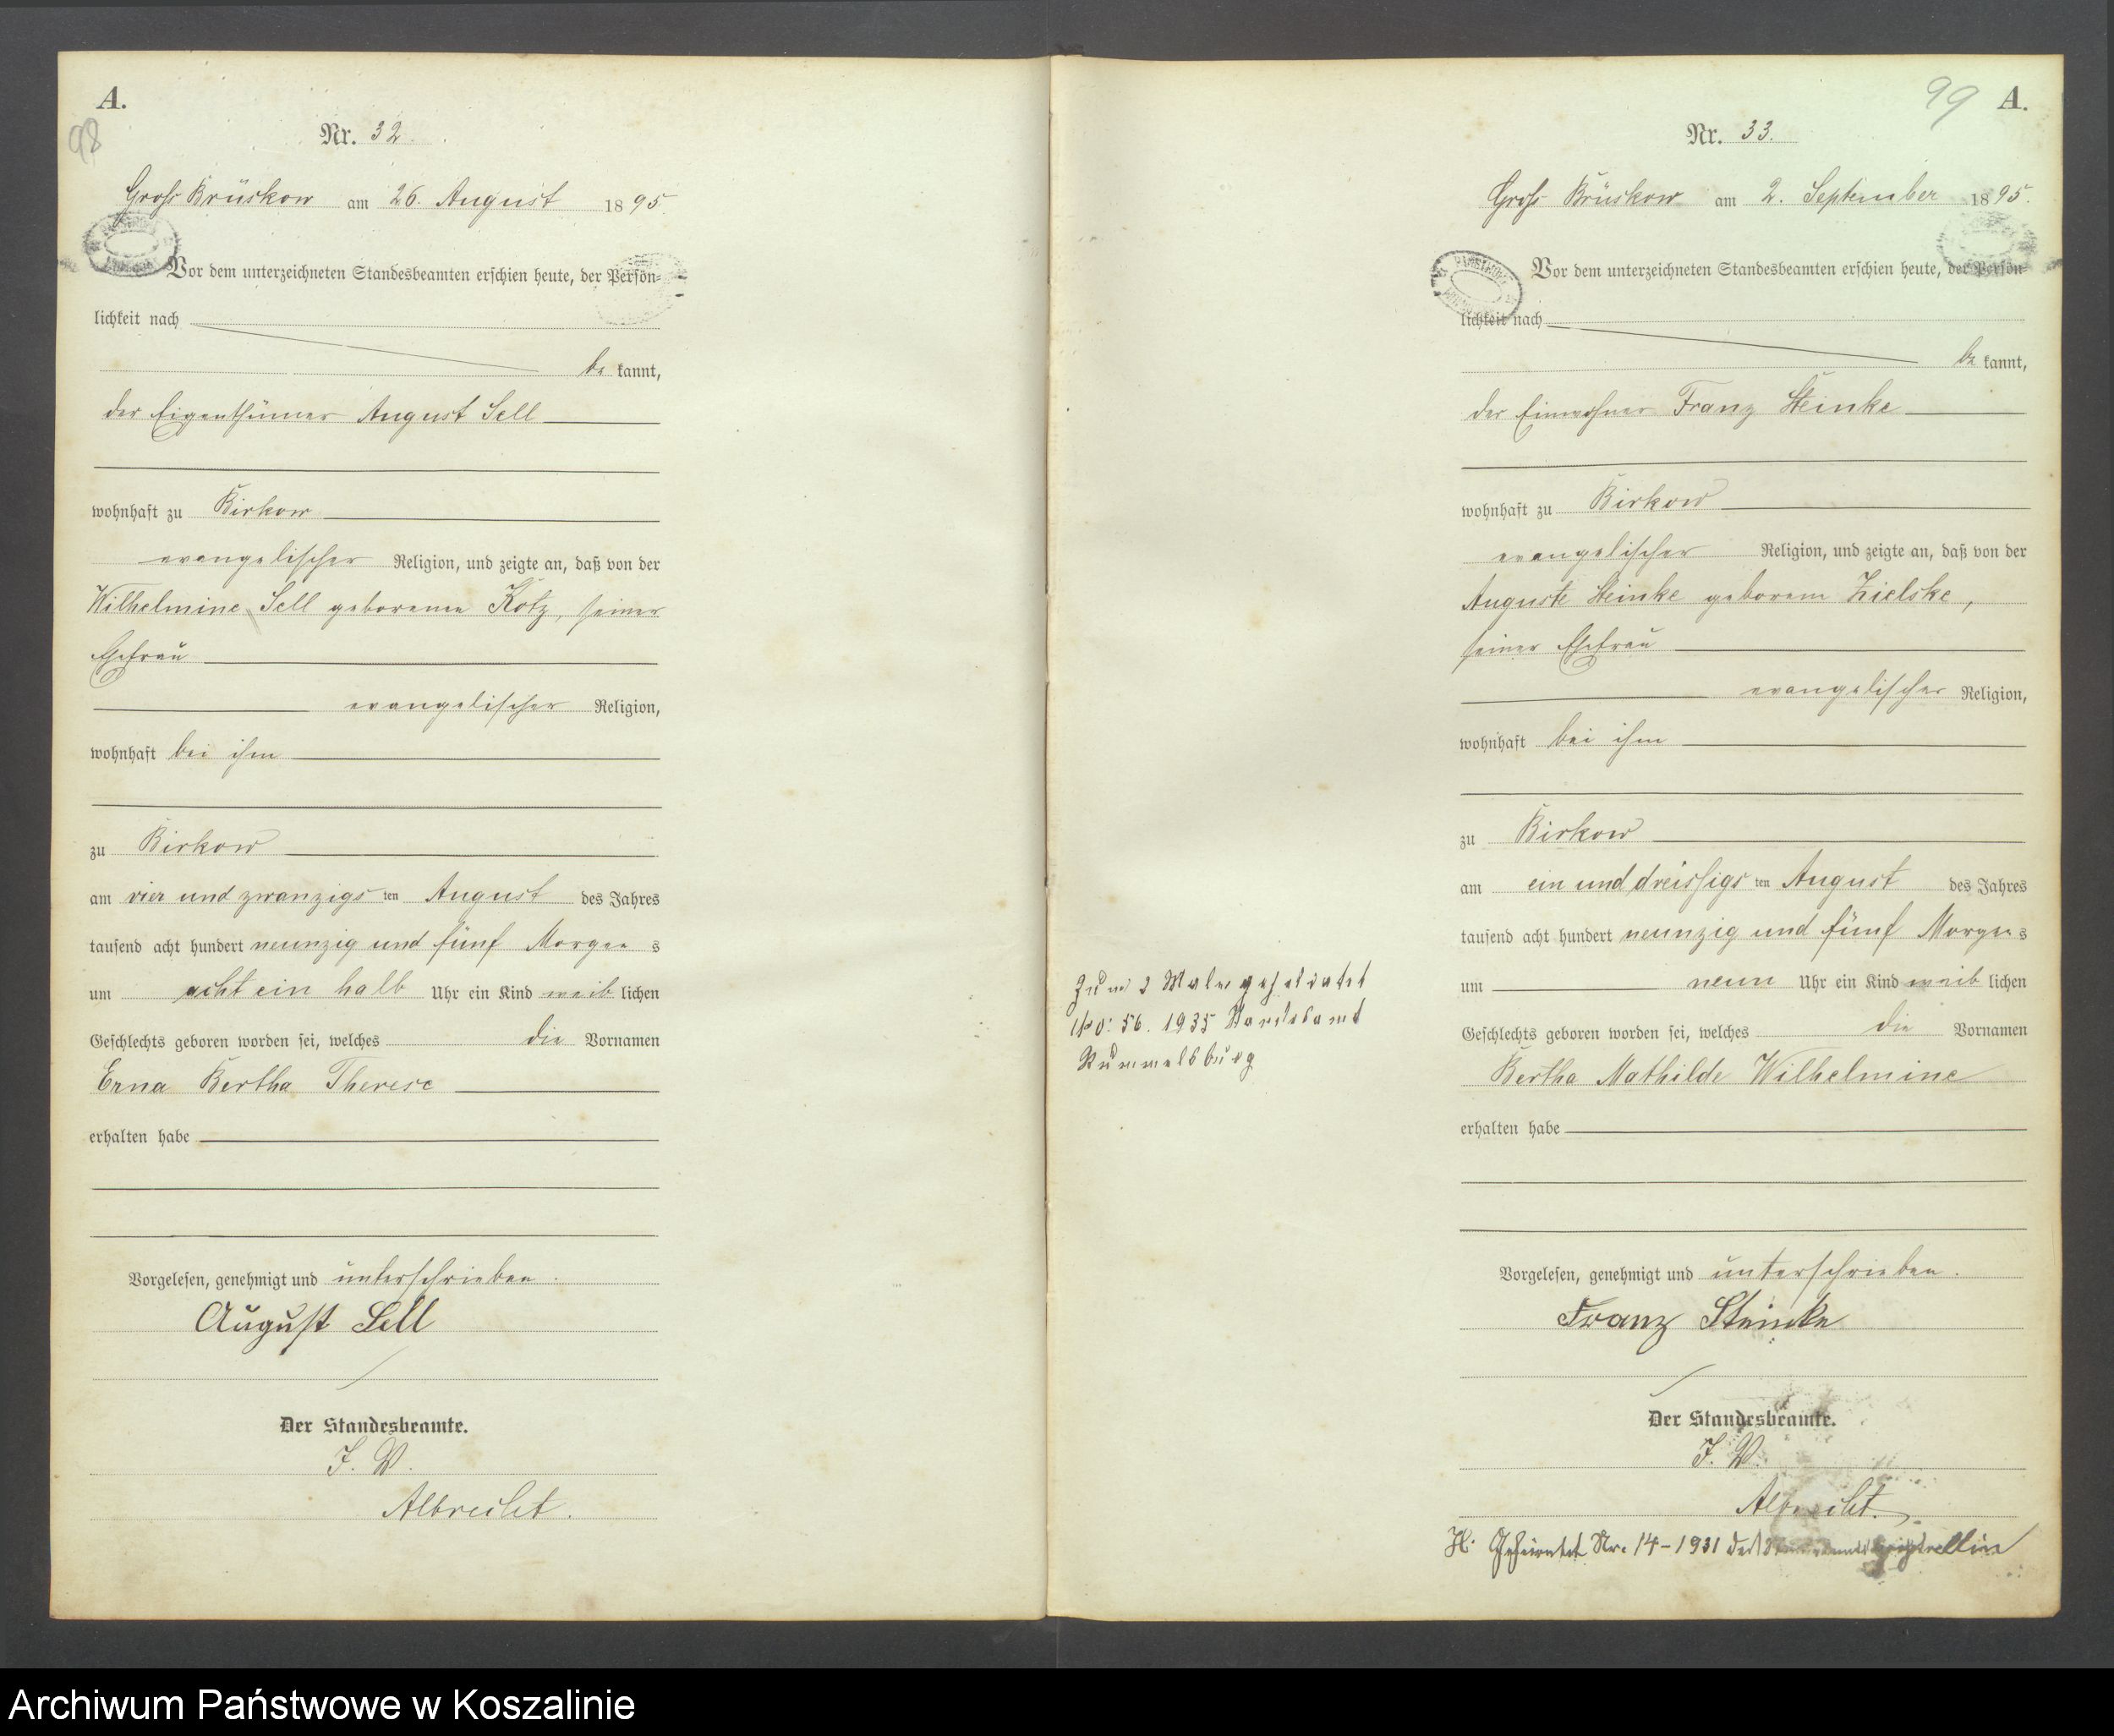 A.
98
Nr. 32.
Groß Brüskow am 26. August 1895.
Vor dem unterzeichneten Standesbeamten erschien heute, der Persön-
lichkeit nach
bekannt,
der Eigenthümer August Sell
wohnhaft zu Birkow
evangelischer Religion, und zeigte an, daß von der
Wilhelmine Sell geborenen Kotz, seiner
Ehefrau
evangelischer Religion,
wohnhaft bei ihm
zu Birkow
am vier und zwanzigsten August des Jahres
tausend acht hundert neunzig und fünf Morgens
um acht ein halb Uhr ein Kind weiblichen
Geschlechts geboren worden sei, welches die Vornamen
Erna Bertha Therese
erhalten habe
Vorgelesen, genehmigt und unterschrieben.
August Sell
Der Standesbeamte.
J. V.
Albrecht.
99 A.
Nr. 33.
Groß Brüskow am 2. September 1895.
Vor dem unterzeichneten Standesbeamten erschien heute, der Persön-
lichkeit nach
bekannt,
der Einwohner Franz Steinke
wohnhaft zu Birkow
evangelischer Religion, und zeigte an, daß von der
Auguste Steinke geborene Zielske,
seiner Ehefrau
evangelischer Religion,
wohnhaft bei ihm
zu Birkow
am ein und dreissigsten August des Jahres
tausend acht hundert neunzig und fünf Morgens
um neun Uhr ein Kind weiblichen
Geschlechts geboren worden sei, welches die Vornamen
Bertha Mathilde Wilhelmine
erhalten habe
Vorgelesen, genehmigt und unterschrieben.
Franz Steinke
Der Standesbeamte.
J. V.
Albrecht.
H. Geheiratet Nr. 14-1931 des
Zum 2 Male geheiratet
No: 56. 1935 Standesamt
Rummelsburg
Archiwum Państwowe w Koszalinie